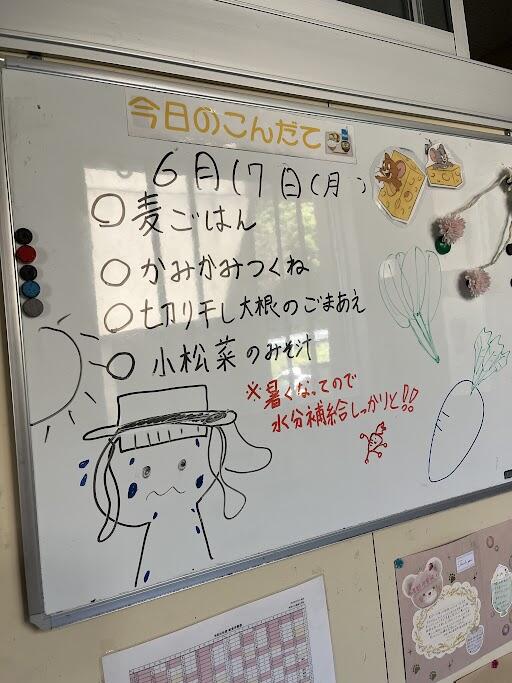 今日のこんだて
6月17日(月)
○麦ごはん
○かみかみつくね
○切り干し大根のごまあえ
○小松菜のみそ汁
※暑くなってので
水分補給しっかりと!!